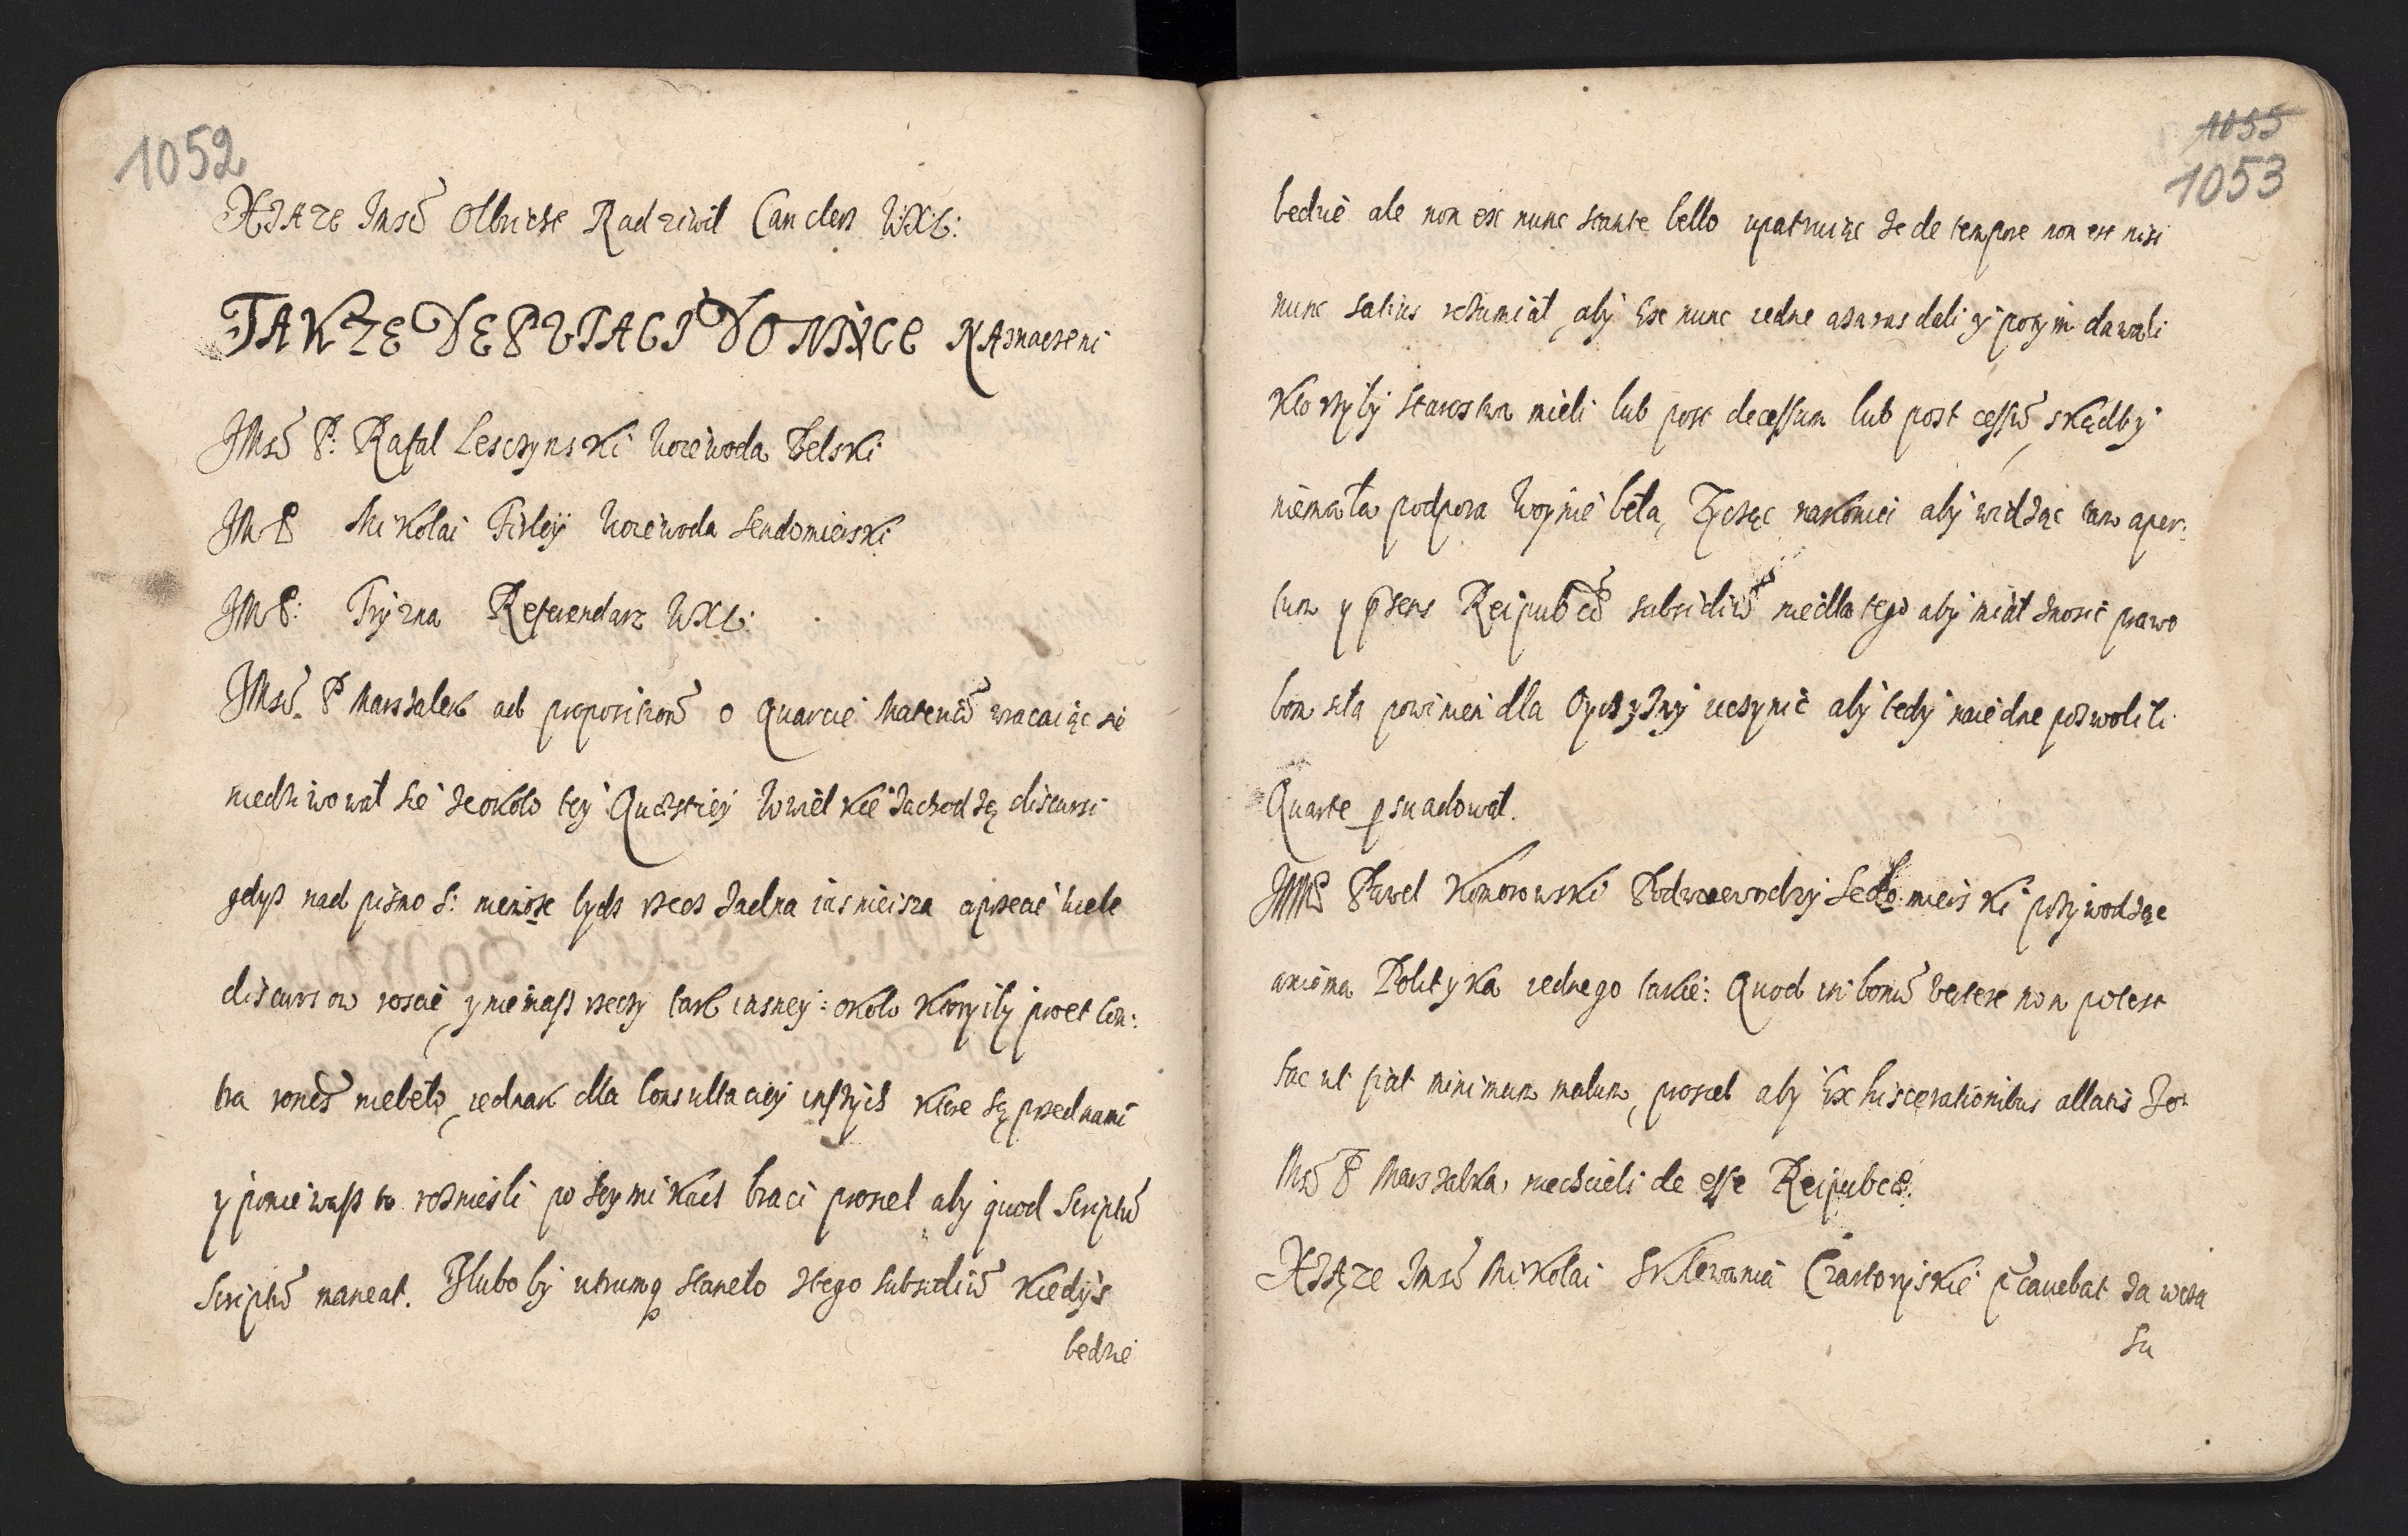 1052
XIAZE Jmść Olbricht Radziwil Canclerz WXL:
TAKZE DEPUTACI DO MIŃCE NAznaczeni
JMść P: Rafał Lesczynski Woiewoda Belski
JM P Mikołai Firleÿ Woiewoda Sendomierski
JM P: Tryzna Referendarz WXL:
JMść P Marszalek ad propositionẽ o Quarcie Materiã wracaiąc się
niedziwował się że około tey Quæstiey W wielkie zachodzą discursi
gdyż nad pismo S: niemoże bydz rzecz żadna iasnieisza a przecie wiele
discursow roscie, y niemasz rzeczy tak iasney: około ktoryiby pro et con:
tra rones niebeło, iednak dla Consultaciey inszych ktore są przednami
y poniewasz to roznieśli po seymikach braci prosiel aby quod Scriptũ
Scriptũ maneat. Ilubo by utrumq stanęło ztego subsidiũ kiedyś
bedzie
1055
1053
bedzie ale non ex nunc stante bello upatruiąc że de tempore non est nisi
nunc satius rozumiał, aby Ex nunc iedne azaraz dali y potym dawali
Ktorzyby starostwa mieli lub post decessum lub post cessũ, skądby
niemała podpora Woynie beła, Życząc nakoniec aby widząc tam aper:
tum y p̃sens Reipubcæ subsidiũ niedlatego aby miał znosić prawo
bon siła powinien dla Oyczyzny uczynić aby tedy naiedne pozwolili
Quarte psuadował.
JMP Paweł Komorowski Podwoiewodzy Sędomierski przywodząc
axioma Polityka iednego takie: Quod in bonũ vertere non potest
fac ut fiat minimum malum, prosiel aby Ex hisce rationibus allatis Jo:
Mść P Marszalka niechcieli de esse Reipubcæ.
XIĄZE Jmść Mikołai SKlewania Czartoryskie p̃cauebat za wcza
su